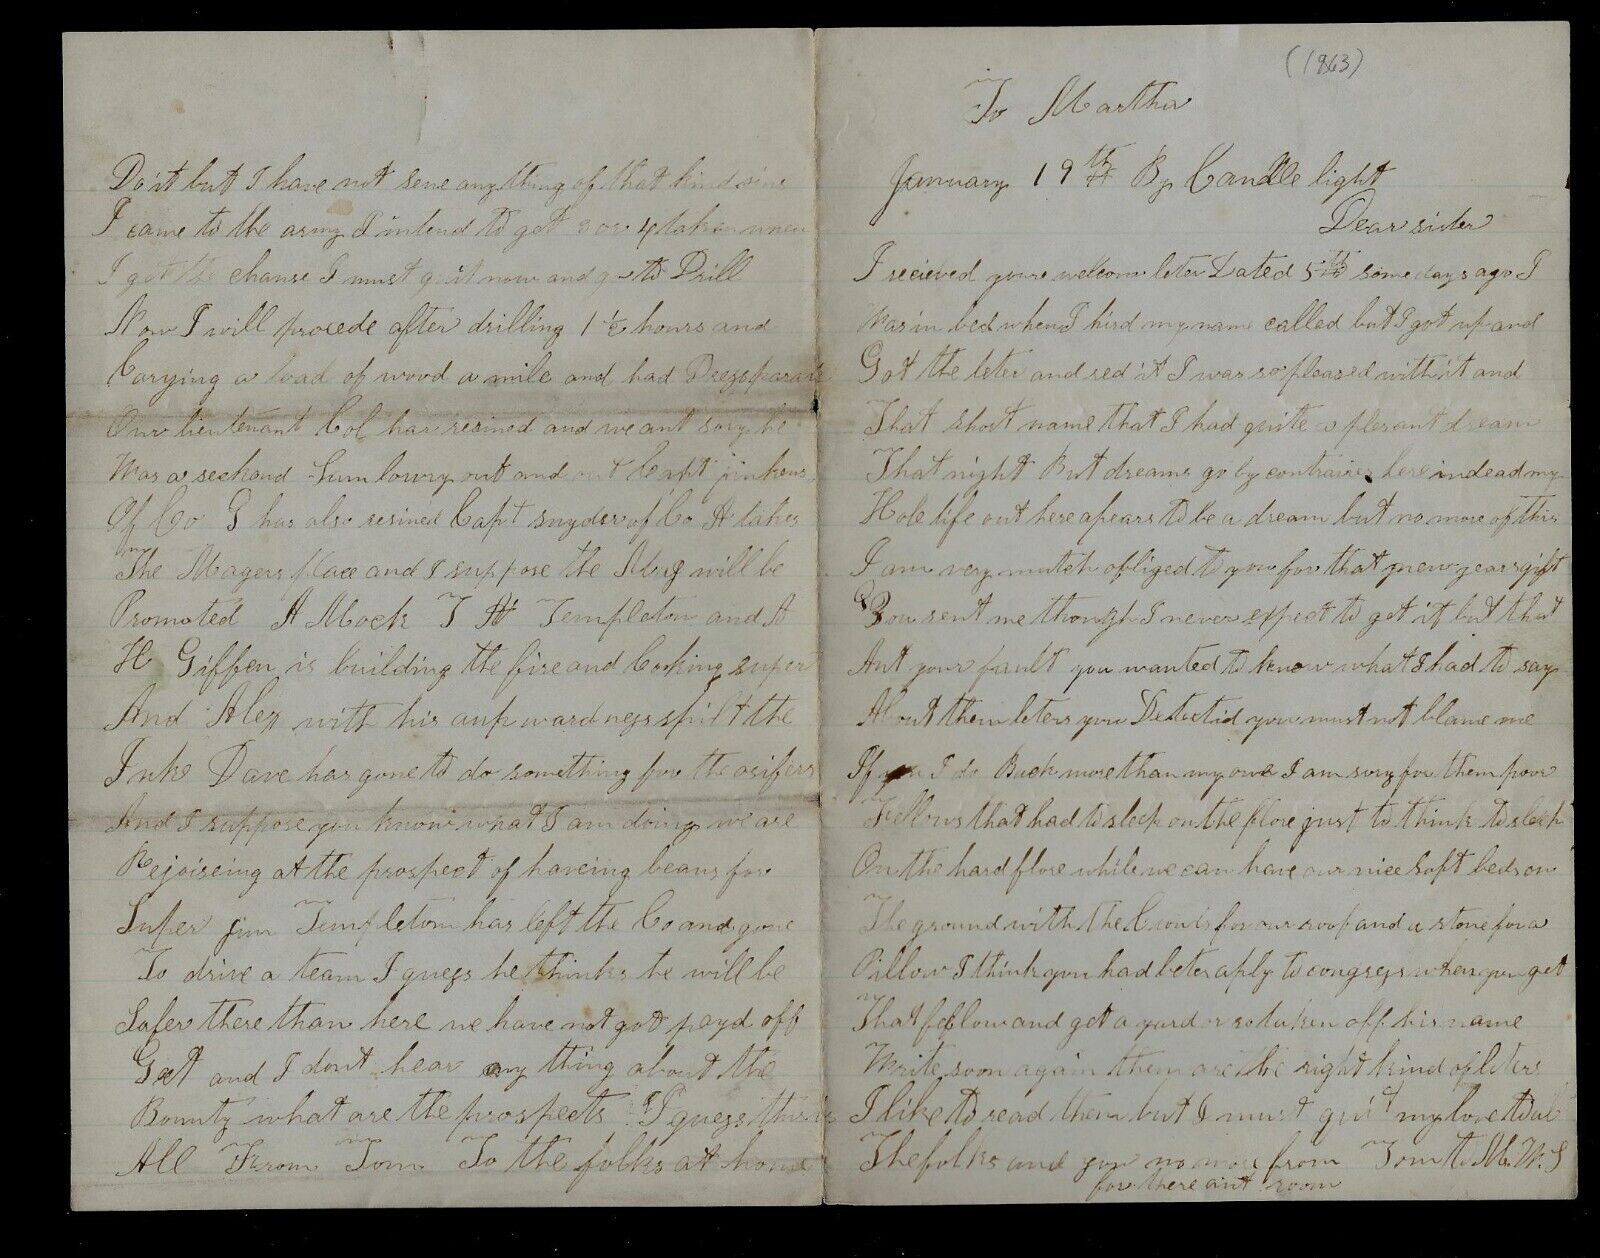 Do it but I have not sene any thing of that kind sinc
I came to the army I intend to get 3 or 4 taken when
I get the chanse I must quit now and go to Drill
Now I will prosede after drilling 1 ½ hours and
Carying a load of wood a mile and had Dressparade
Our lieutenant Col has resined and we ant sory he
Was a seckond Sum lowry out and out Capt jinkens
Of Co G has also resined Capt snyder of Co H takes
The Magers place and I suppose the Marg will be
Promoted A Mock T A Templeton and A
H Giffen is building the fire and Cooking super
And Alex with his aukwardness spilt the
Inke Dave has gone to do something for the osifers
And I suppose you know what I am doing we are
Rejoiseing at the prospect of haveing beans for
Super jim Templeton has left the Co and gone
To drive a team I guess he thinks he will be
Safer there than here we have not got payd off
Get and I dont hear any thing about the
Bounty what are the prospects I guess this is
All From Tom To the folks at home
(1863)
To Martha
January 19th By Candle light
Dear sister
I recieved youre welcom leter Dated 5th some days ago I
Was in bed when I hird my name called but I got up and
Got the leter and red it I was so pleased with it and
That short name that I had quite a plesant dream
That night But dreams go by contraries here indead my
Hole life out here apears to be a dream but no more of this
I am very mutch obliged to you for that new years gift
You sent me though I never expect to get it but that
Ant your fault you wanted to know what I had to say
About them leters you Detectid you must not blame me
If I do Buck more than my own I am sory for them poor
Fellows that had to sleep on the flore just to think to sleep
On the hard flore while we can have our nice soft beds on
The ground with the Clouds for our roof and a stone for a
Pillow I think you had beter aply to congress when you get
That fellow and get a yard or so taken off his name
Write soon again them are the right kind of leters
I like to read them but I must quit my love to al
The folks and you no more from Tom to M. M. S
for there aint room